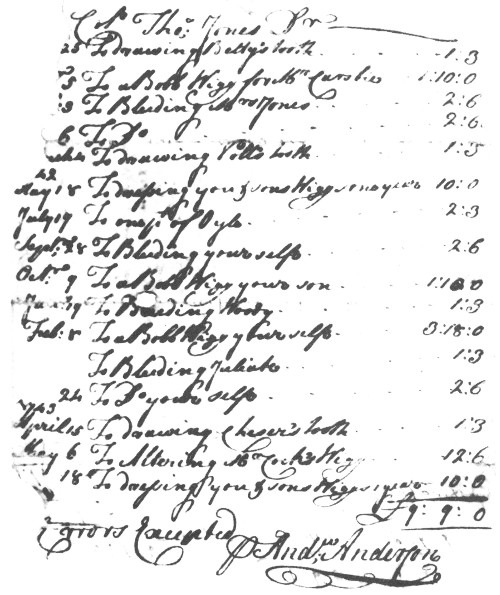 Col. Tho: Jones Dr
25 To drawing Betty's tooth 1:3
5 To a Bobb Wigg for Mr Carsbie 1:10:0
3 To Bleeding Mrs Jones 2:6
6 To Do 2:6
To drawing Poll's tooth 1:3
42
May 18 To dressing you & sons Wiggs one year 10:0
July 19 To one pt of Oyle 2:3
Septr 28 To Bleeding your self 2:6
Octr 9 To a Bobb Wigg your son 1:10:0
19 To Bleeding Moody 1:3
Feb: 8 To a Bobb Wigg your self 3:18:0
To Bleeding Juliate 1:3
24 To Do your self 2:6
1743
April 15 To drawing Cheser's tooth 1:3
May 6 To Altering Mr Cock's Wigg 12:6
18 To dressing you & sons Wiggs 1 year 10:0
£9:9:0
Errors Excepted
P Andw Anderson